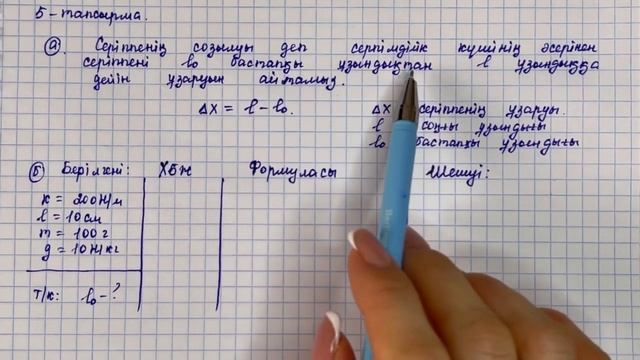 5-тапсырма.
а. Серіппенің созылуы деп серпімділік күшінің әсерінен
серіппені l₀ бастапқы ұзындықтан l ұзындыққа
дейін ұзаруын айтамыз.
Δx = l - l₀.
Δx серіппенің ұзаруы.
l соңғы ұзындығы
l₀ бастапқы ұзындығы
б Берілгені: ХБЖ Формуласы Шешуі:
к = 200Н/м
l = 10см
m = 100г
g = 10Н/кг
Т/к: l₀ - ?